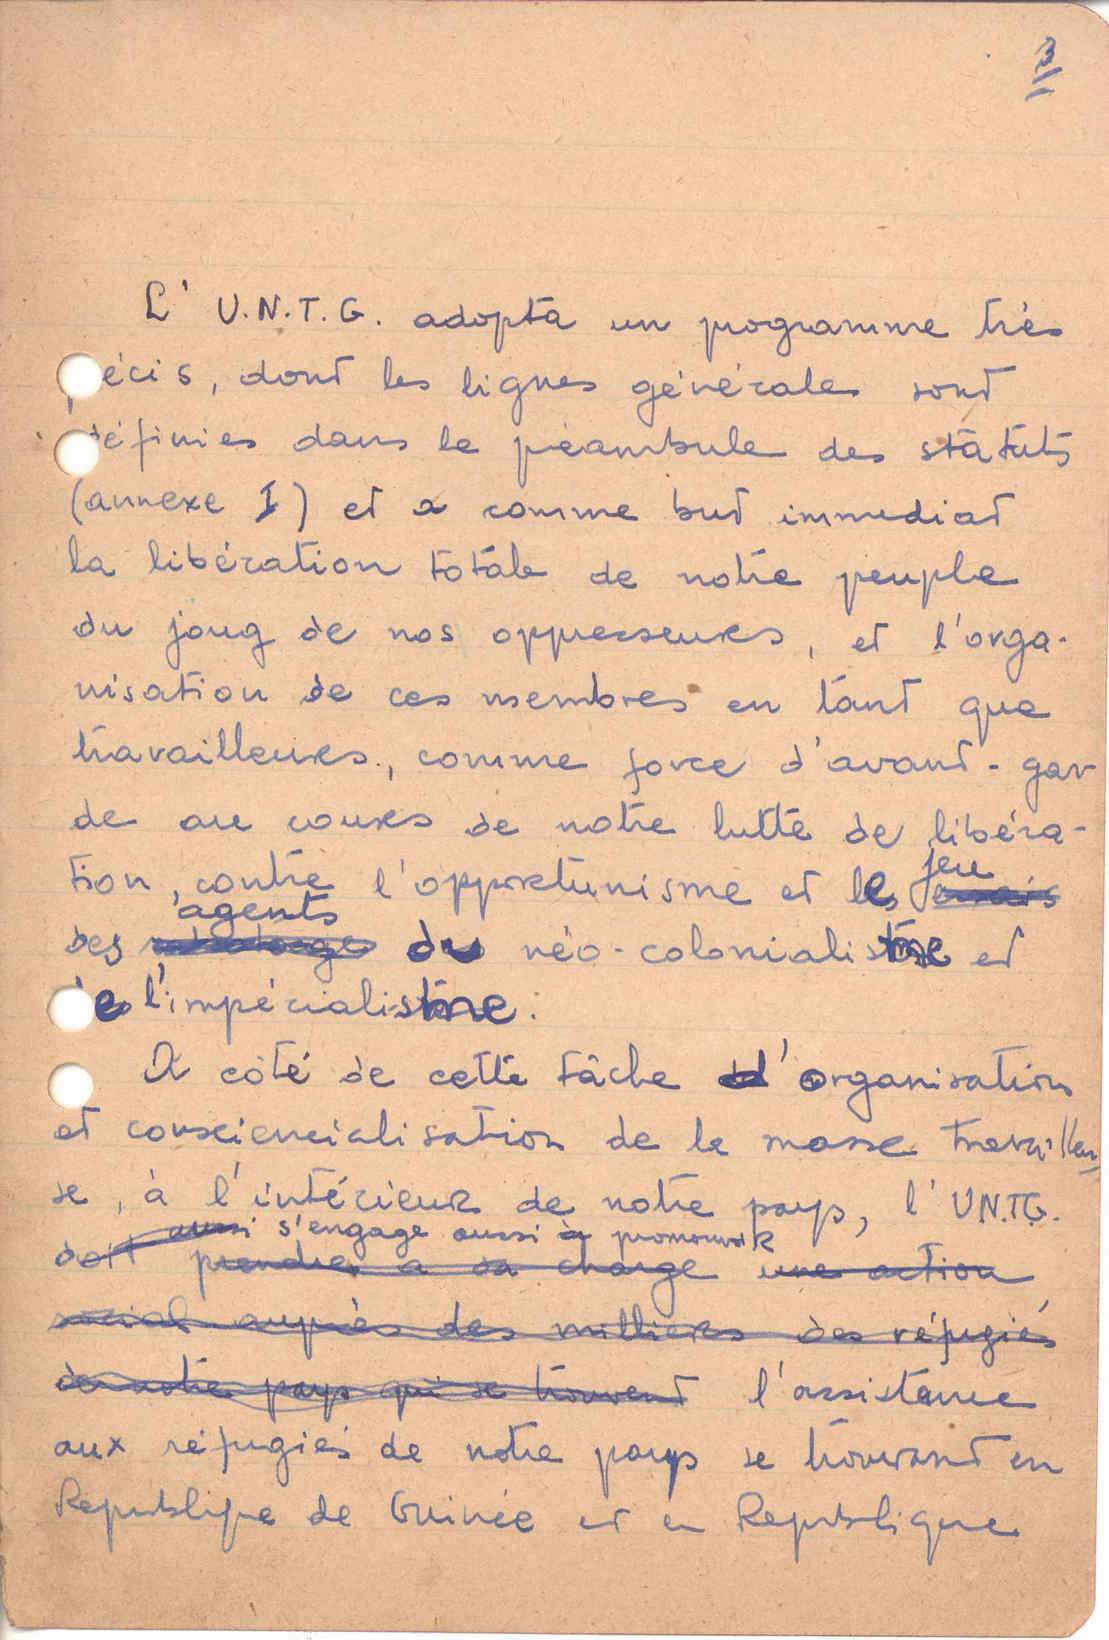 3
L'U.N.T.G. adopta un programme très
écis, dont les lignes générales sont
définies dans le préambule des statuts
(annexe I) et a comme but immediat
la libération totale de notre peuple
du joug de nos oppresseurs, et l'orga-
nisation de ces membres en tant que
travailleurs, comme force d'avant-gar
de au cours de notre lutte de libéra-
tion, contre l'opportunisme et le jeu
des agents du néo-colonialisme et
de l'impérialisme.
A côté de cette tâche d'organisation
et consciencialisation de la masse travailleu
se, à l'intérieur de notre pays, l'UNTG.
aussi s'engage aussi à promouvoir
doit prendre a sa charge une action
social auprès des milliers des réfugiés
de notre pays qui se trouvent l'assistance
aux réfugiés de notre pays se trouvant en
Republique de Guinée et en Republique